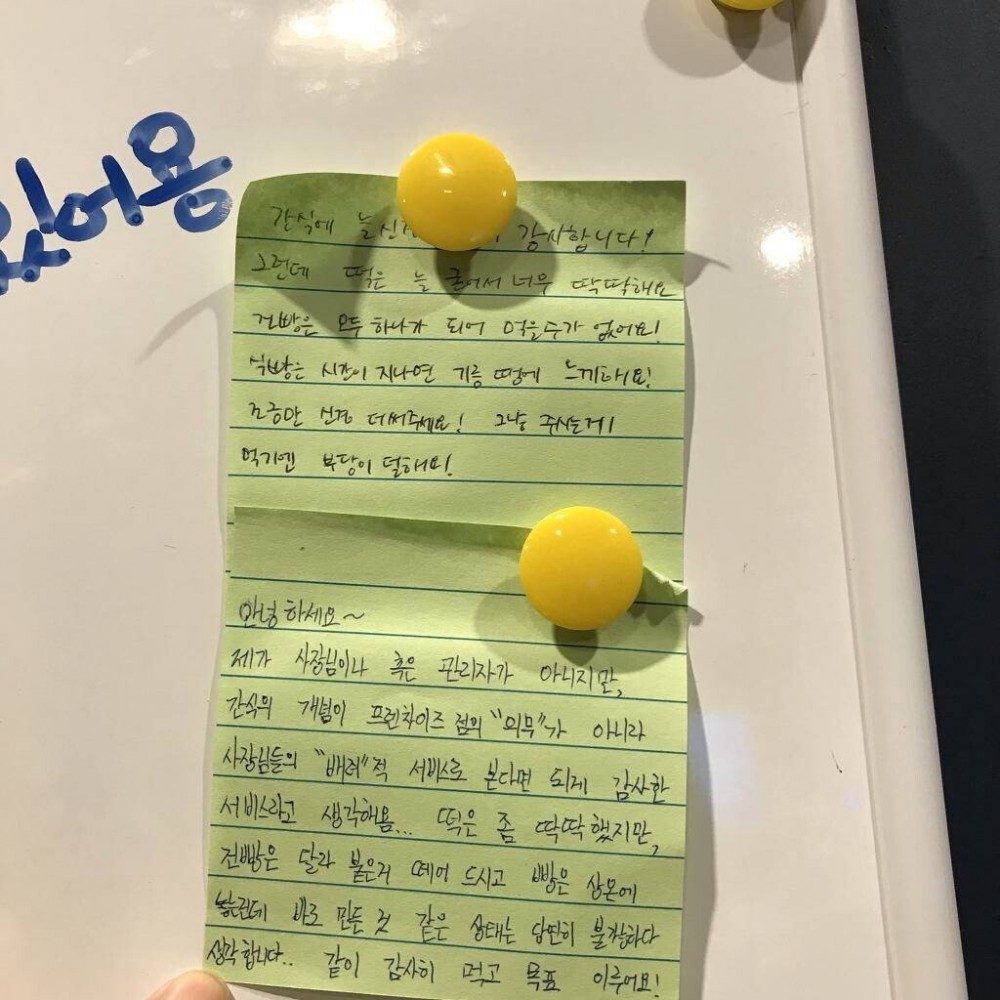 있어용
간식에 늘 신경 감사합니다!
그런데 떡은 늘 굳어서 너무 딱딱해요
건빵은 모두 하나가 되어 먹을수가 없어요!
식빵은 시간이 지나면 기름 땜에 느끼해요!
조금만 신경 더써주세요! 그냥 주시는게
먹기엔 부담이 덜해요!
안녕하세요~
제가 사장님이나 혹은 관리자가 아니지만,
간식의 개념이 프렌차이즈 점의 "의무"가 아니라
사장님들의 "배려"적 서비스로 본다면 되게 감사한
서비스라고 생각해욤... 떡은 좀 딱딱했지만,
건빵은 달라 붙은거 떼어 드시고 빵은 상온에
놓는데 바로 만든 것 같은 상태는 당연히 불가능하다
생각합니다.. 같이 감사히 먹고 목표 이루어요!